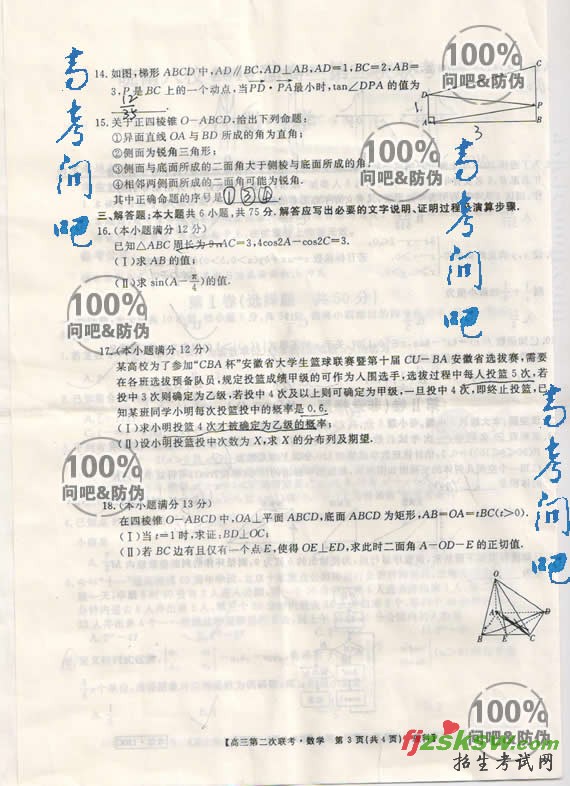 14. 如图,梯形 ABCD 中,AD∥BC,AD⊥AB,AD=1,BC=2,AB=
3,P 是 BC 上的一个动点,当PD·PA最小时,tan∠DPA 的值为
12/35
15. 关于正四棱锥 O-ABCD,给出下列命题:
①异面直线 OA 与 BD 所成的角为直角;
②侧面为锐角三角形;
③侧面与底面所成的二面角大于侧棱与底面所成的角;
④相邻两侧面所成的二面角可能为锐角.
其中正确命题的序号是①③④.
三、解答题:本大题共 6 小题,共 75 分.解答应写出必要的文字说明、证明过程及演算步骤.
16. (本小题满分 12 分)
已知△ABC 周长为 9,AC=3,4cos2A-cos2C=3.
(Ⅰ)求 AB 的值;
(Ⅱ)求 sin(A-π/4)的值.
17. (本小题满分 12 分)
某高校为了参加“CBA 杯”安徽省大学生篮球联赛暨第十届 CU-BA 安徽省选拔赛,需要
在各班选拔预备队员,规定投篮成绩甲级的可作为入围选手,选拔过程中每人投篮 5 次,若
投中 3 次则确定为乙级,若投中 4 次及以上则可确定为甲级,一旦投中 4 次,即终止投篮,已
知某班同学小明每次投篮投中的概率是 0.6.
(Ⅰ)求小明投篮 4 次才被确定为乙级的概率;
(Ⅱ)设小明投篮投中次数为 X,求 X 的分布列及期望.
18. (本小题满分 13 分)
在四棱锥 O-ABCD 中,OA⊥平面 ABCD,底面 ABCD 为矩形,AB=OA=tBC(t>0).
(Ⅰ)当 t=1 时,求证:BD⊥OC;
(Ⅱ)若 BC 边有且仅有一个点 E,使得 OE⊥ED,求此时二面角 A-OD-E 的正切值.
D
C
P
A
B
1
3
O
A
D
B
E
C
【高三第二次联考·数学 第 3 页(共 4 页) 理科】
高考问吧
高考问吧
高考问吧
100%
问吧&防伪
100%
问吧&防伪
100%
问吧&防伪
100%
问吧&防伪
100%
问吧&防伪
fjzsksw.com
招生考试网